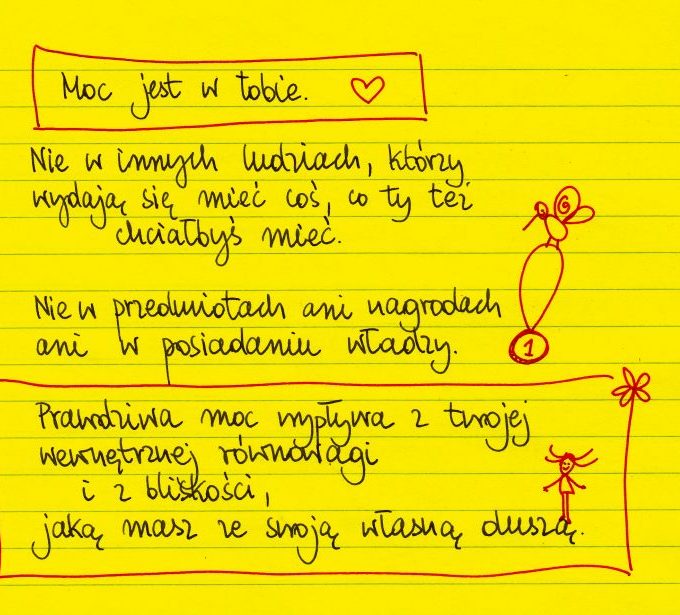 Moc jest w tobie.
Nie w innych ludziach, którzy
wydają się mieć coś, co ty też
chciałbyś mieć.
Nie w przedmiotach ani nagrodach
ani w posiadaniu władzy.
1
Prawdziwa moc wypływa z twojej
wewnętrznej równowagi
i z bliskości,
jaką masz ze swoją własną duszą.